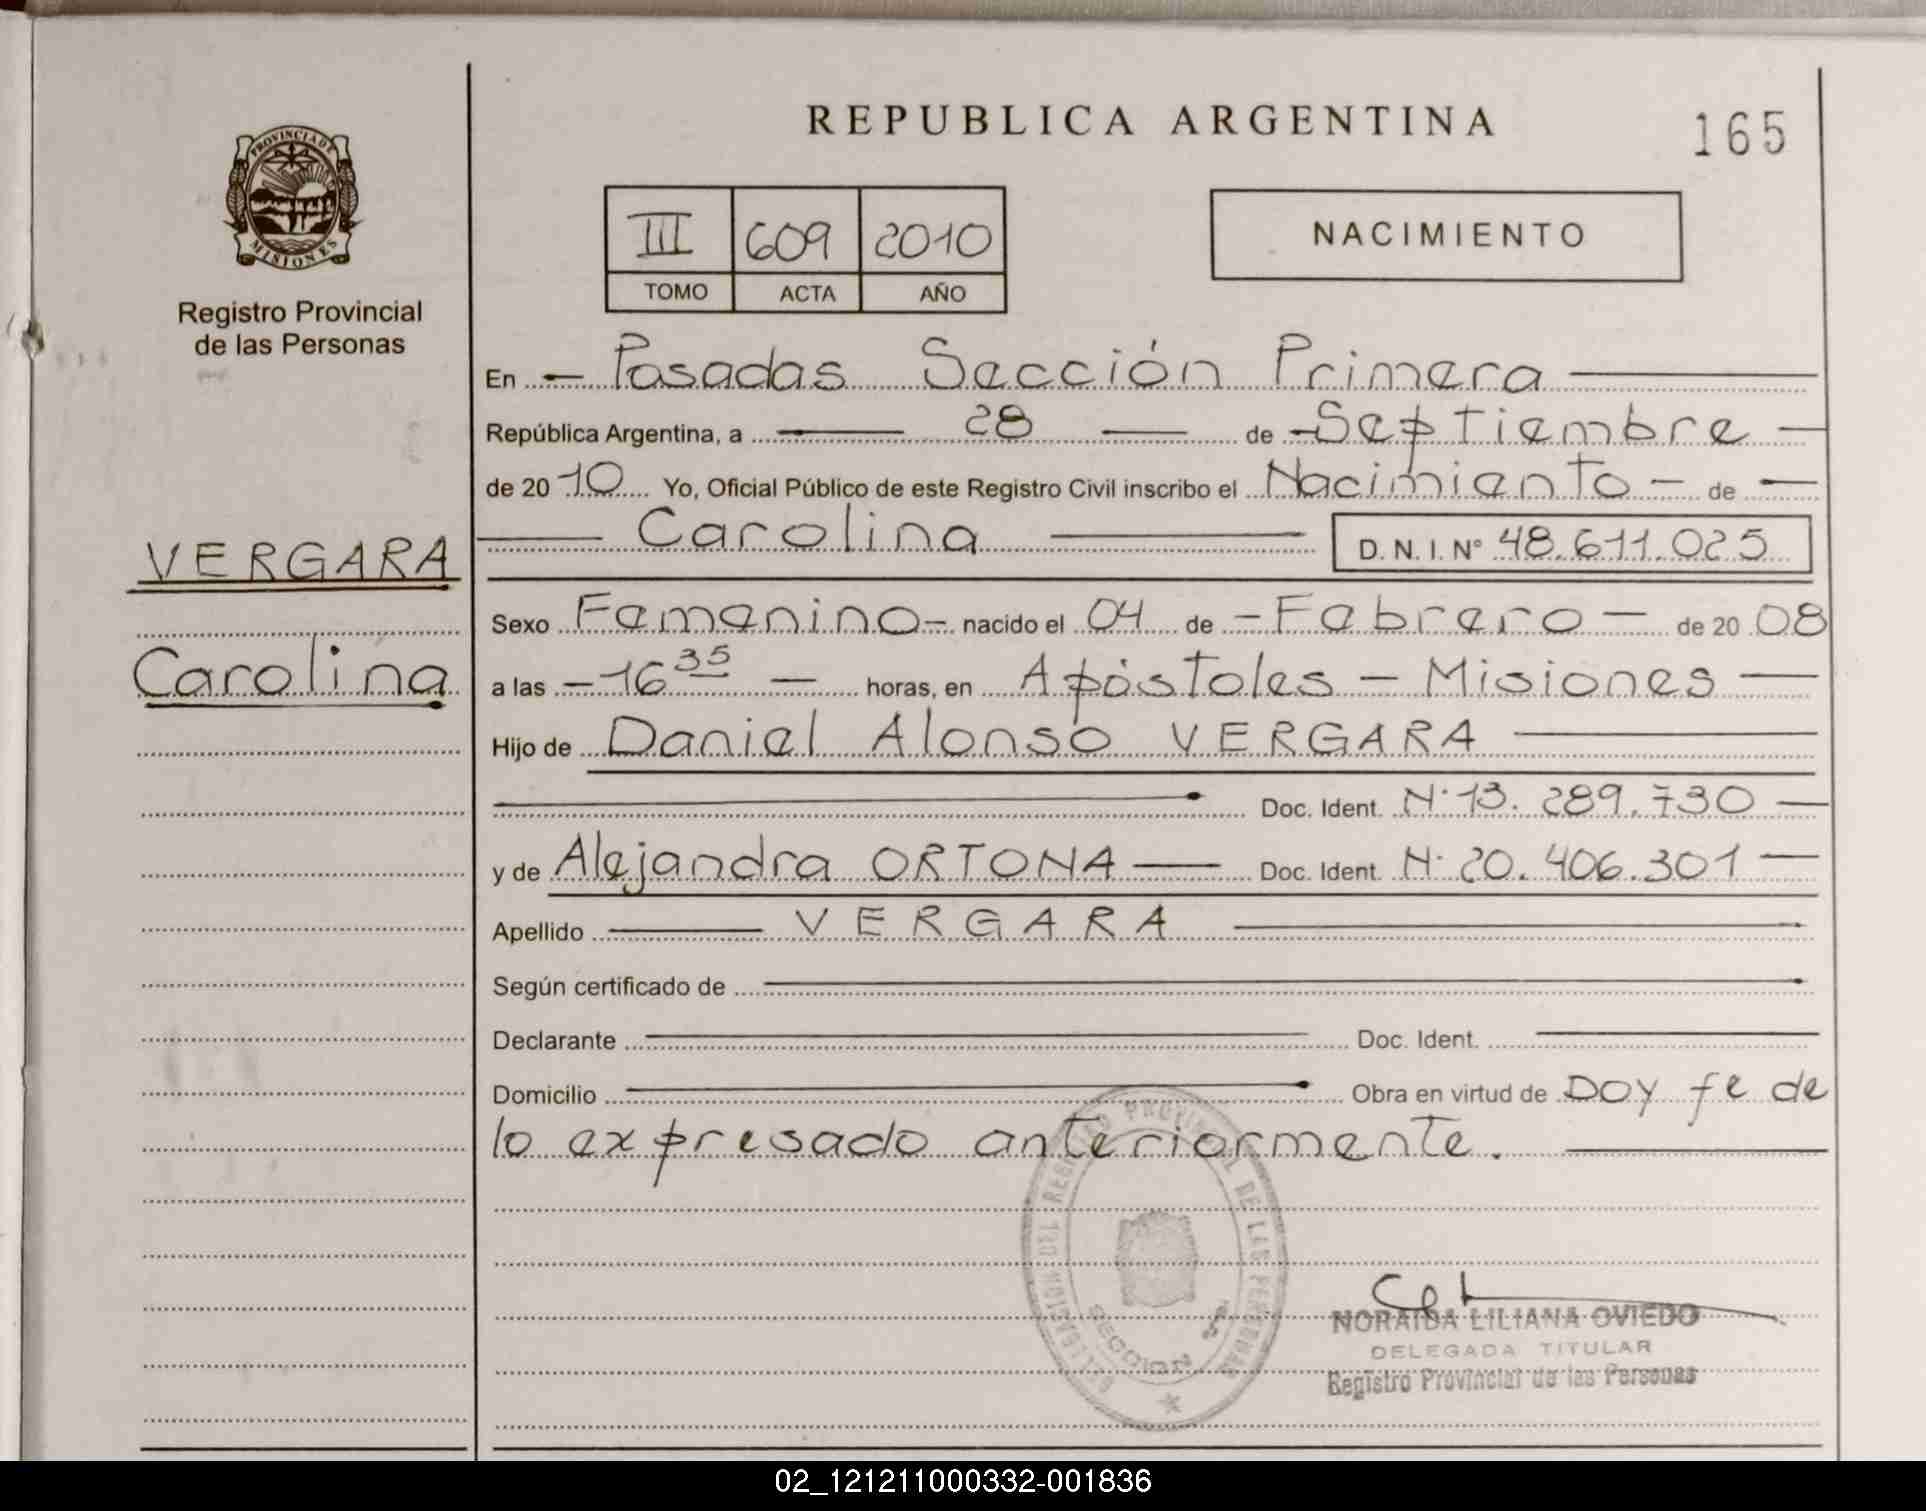 REPUBLICA ARGENTINA
165
PROVINCIA DE
MISIONES
Registro Provincial
de las Personas
III 609 2010
TOMO ACTA AÑO
NACIMIENTO
En Posadas Sección Primera
República Argentina, a 28 de Septiembre
de 2010 Yo, Oficial Público de este Registro Civil inscribo el Nacimiento de
Carolina D. N. I. N° 48.611.025
VERGARA
Carolina
Sexo Femenino nacido el 04 de Febrero de 2008
a las 16 35 horas, en Apóstoles - Misiones
Hijo de Daniel Alonso VERGARA
Doc. Ident. N° 13.289.730
y de Alejandra ORTONA Doc. Ident. N° 20.406.301
Apellido VERGARA
Según certificado de
Declarante Doc. Ident.
Domicilio Obra en virtud de Doy fe de
lo expresado anteriormente.
DELEGACION DEL REGISTRO PROVINCIAL DE LAS PERSONAS
SECCION 1ª
NORAIDA LILIANA OVIEDO
DELEGADA TITULAR
Registro Provincial de las Personas
02_121211000332-001836